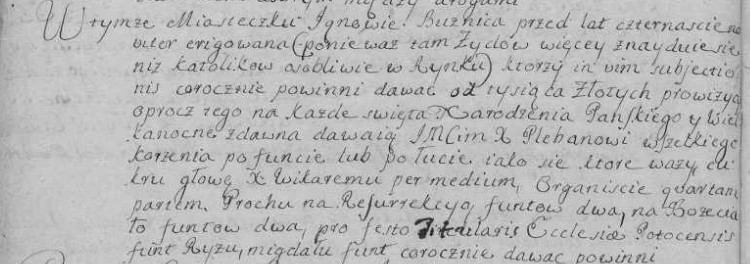 Wtymże Miasteczku Ignowie. Bużnica przed lat czternascie no
viter erigowana (ponieważ tam Żydow więcey znayduie się
niż katolikow osobliwie w Rynku) ktorzy in vim subjectio
nis corocznie powinni dawac od tysiąca Złotych prowizyą
oprocz tego na każde swięta Narodzenia Pańskiego y Wiel
kanocne zdawna dawaią JMCim X Plebanowi wszelkiego
korzenia po funcie lub po łucie iako się ktore waży, cu
kru głowę X Wikaremu per medium, Organiscie quartam
partem. Prochu na Resurrekcyą funtow dwa, na Bożecia
to funtow dwa, pro festo Titularis Ecclesiæ Potocensis
funt Ryżu, migdału funt corocznie dawac powinni